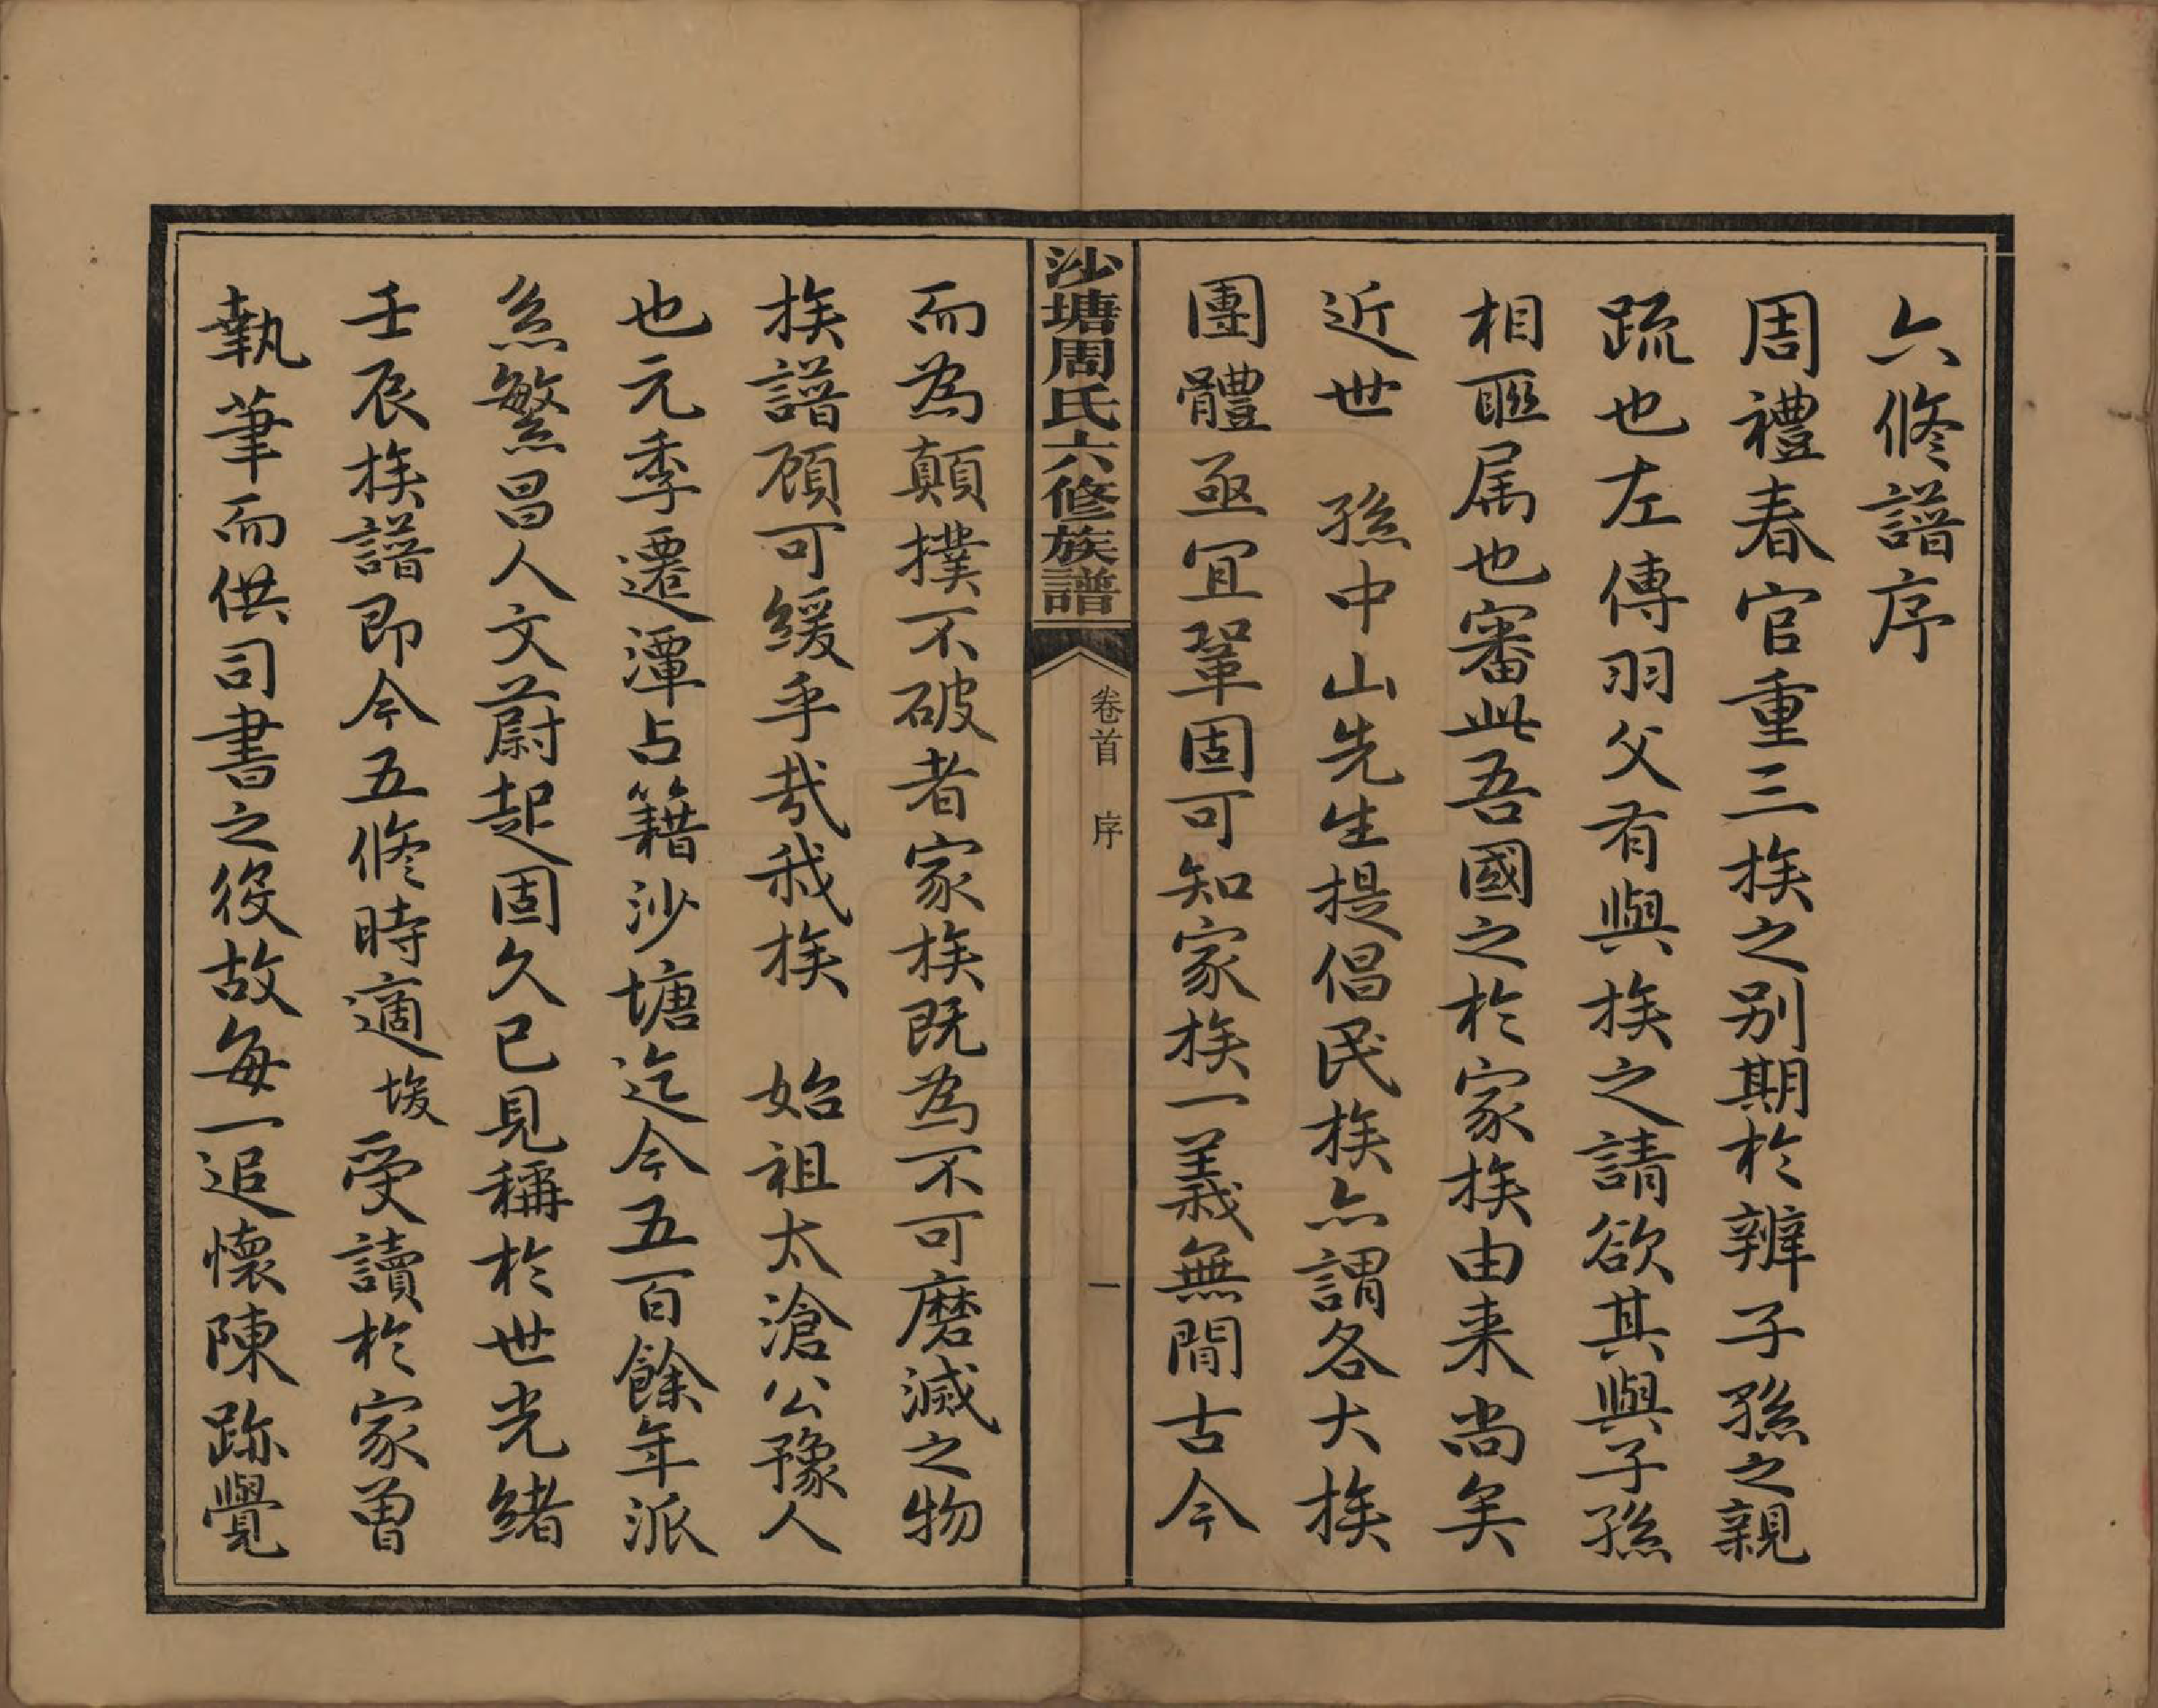 六修譜序
周禮春官重三族之别期於辨子孫之親
疏也左傳羽父有與族之請欲其與子孫
相聨属也審此吾國之於家族由来尚矣
近世 孫中山先生提倡民族亦謂各大族
團體亟宜鞏固可知家族一義無間古今
沙塘周氏六修族譜
卷首 序
一
而為顛撲不破者家族既為不可磨滅之物
族譜顧可緩乎哉我族 始祖太滄公豫人
也元季遷潭占籍沙塘迄今五百餘年派
系繁昌人文蔚起固久已見稱於世光緒
壬辰族譜即今五修時適堫受讀於家曾
執筆而供司書之役故每一追懷陳跡覺